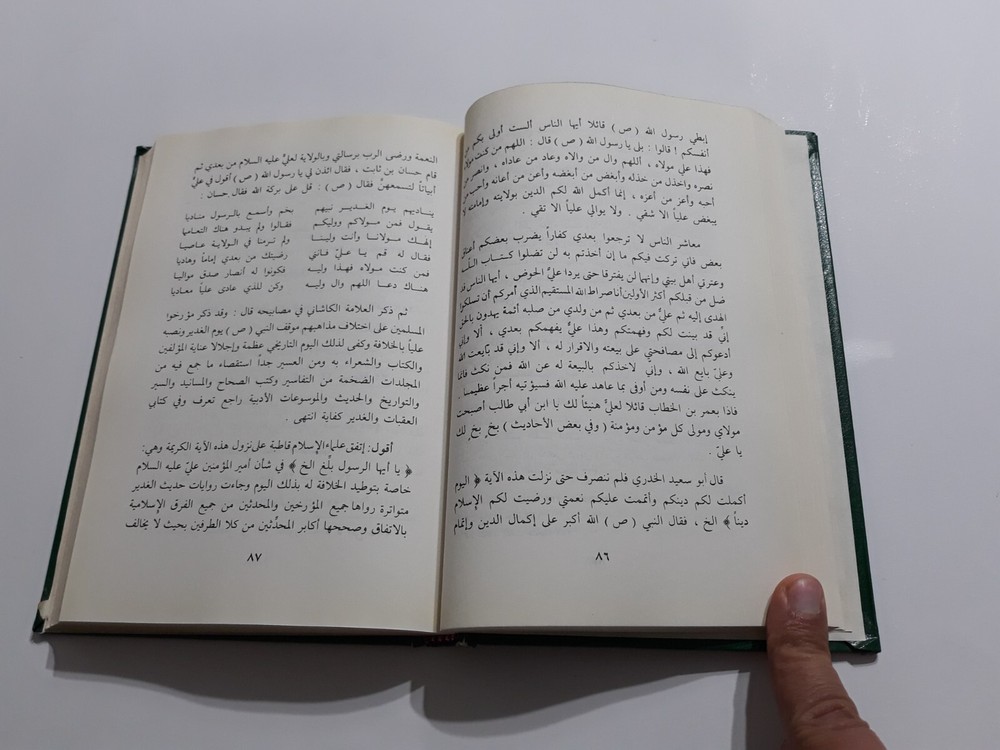 إبطي رسول الله (ص) قائلا أيها الناس ألست أولى بكم من
أنفسكم ! قالوا : بلى يا رسول الله (ص) قال : اللهم من كنت مولاه
فهذا علي مولاه ، أللهم وال من والاه وعاد من عاداه ، وانصر من
نصره وأخذل من خذله وأبغض من أبغضه وأعن من أعانه وأحب من
أحبه وأعز من أعزه ، إنما أكمل الله لكم الدين بولايته وإمامته لا
يبغض علياً الا شقي . ولا يوالي علياً الا تقي .
معاشر الناس لا ترجعوا بعدي كفاراً يضرب بعضكم أعناق
بعض فاني تركت فيكم ما إن أخذتم به لن تضلوا كتاب الله
وعترتي أهل بيتي وإنهما لن يفترقا حتى يردا عليّ الحوض ، أيها الناس قد
ضل من قبلكم أكثر الأولين أنا صراط الله المستقيم الذي أمركم أن تسلكوا
الهدى إليه ثم عليّ من بعدي ثم من ولدي من صلبه أئمة يهدون بالحق
إنّي قد بينت لكم وفهمتكم وهذا عليّ يفهمكم بعدي ، ألا وإني
أدعوكم إلى مصافحتي على بيعته والاقرار له ، ألا وإني قد بايعت الله
وعليّ بايع الله ، وإني لاخذكم بالبيعة له عن الله فمن نكث فانما
ينكث على نفسه ومن أوفى بما عاهد عليه الله فسيؤتيه أجراً عظيماً .
فاذا بعمر بن الخطاب قائلا لعليّ هنيئاً لك يا ابن أبي طالب أصبحت
مولاي ومولى كل مؤمن ومؤمنة ( وفي بعض الأحاديث ) بخٍ بخٍ لك
يا عليّ .
قال أبو سعيد الخدري فلم ننصرف حتى نزلت هذه الآية ﴿ اليوم
أكملت لكم دينكم وأتممت عليكم نعمتي ورضيت لكم الإسلام
ديناً ﴾ الخ ، فقال النبي (ص) الله أكبر على إكمال الدين وإتمام
٨٦
النعمة ورضى الرب برسالتي وبالولاية لعليّ عليه السلام من بعدي ثم
قام حسان بن ثابت ، فقال ائذن لي يا رسول الله (ص) أقول في عليّ
أبياتاً لتسمعهنّ فقال (ص) : قل على بركة الله فقال حسان :
يناديهم يوم الغدير نبيهم بخم وأسمع بالرسول مناديا
يقول فمن مولاكم ووليكم فقالوا ولم يبدو هناك التعاميا
إلهك مولانا وأنت ولينا ولم ترمنا في الولاية عاصيا
فقال له قم يا عليّ فانني رضيتك من بعدي إماماً وهاديا
فمن كنت مولاه فهذا وليه فكونوا له أنصار صدق مواليا
هناك دعا اللهم وال وليه وكن للذي عادى علياً معاديا
ثم ذكر العلامة الكاشاني في مصابيحه قال : وقد ذكر مؤرخوا
المسلمين على اختلاف مذاهبهم موقف النبي (ص) يوم الغدير ونصبه
علياً بالخلافة وكفى لذلك اليوم التاريخي عظمة وإجلالا عناية المؤلفين
والكتاب والشعراء به ومن العسير جداً استقصاء ما جمع فيه من
المجلدات الضخمة من التفاسير وكتب الصحاح والمسانيد والسير
والتواريخ والحديث والموسوعات الأدبية راجع تعرف وفي كتابي
العقبات والغدير كفاية انتهى .
أقول : إتفق علماء الإسلام قاطبة على نزول هذه الآية الكريمة وهي :
﴿ يا أيها الرسول بلّغ الخ ﴾ في شأن أمير المؤمنين عليّ عليه السلام
خاصة بتوطيد الخلافة له بذلك اليوم وجاءت روايات حديث الغدير
متواترة رواها جميع المؤرخين والمحدثين من جميع الفرق الإسلامية
بالاتفاق وصححها أكابر المحدّثين من كلا الطرفين بحيث لا يخالف
٨٧